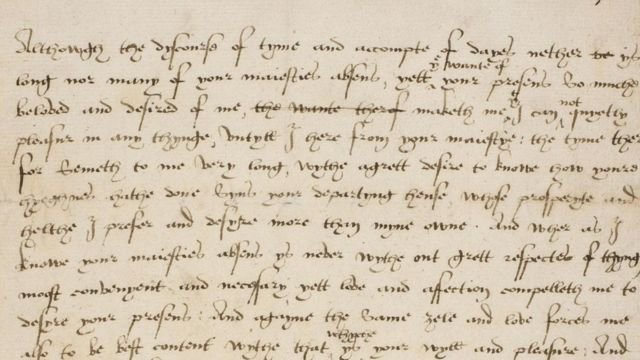 Althowgh the dyscourse of tyme and accompte of dayes nether ys
long nor many of your maiesties absens, yett yͤ wante of your presens so muche
beloved and desired of me, the wante therof maketh me yͭ I can not quyetly
pleasur in any thynge, untyll I here from your maiestye : the tyme ther
for semeth to me very long, wythe a grett desire to knowe how youre
hyeghnes hathe done syns your departyng hense, whose prosperyte and
helthe I prefer and desyre more than myne owne . And wher as I
knowe your maiesties absens ys never wythe out grett respectes of thyng
most convenyent and necessary yett love and affection compelleth me to
desyre your presens : And agayne the same zele and love forces me
also to be best content wythe that whyche ys your wyll and pleasure : And